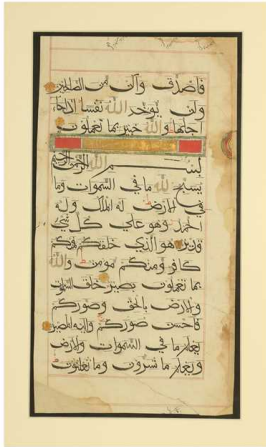 فاصدق واكن من الصلحين
ولن يوخر الله نفسا اذا جاء
اجلها والله خبير بما تعملون
بسم الله الرحمن الرحيم
يسبح لله ما في السموات وما
في الارض له الملك وله
الحمد وهو على كل شيء
قدير هو الذي خلقكم فمنكم
كافر ومنكم مومن والله
بما تعملون بصير خلق السموات
والارض بالحق وصوركم
فاحسن صوركم واليه المصير
يعلم ما في السموات والارض
ويعلم ما تسرون وما تعلنون